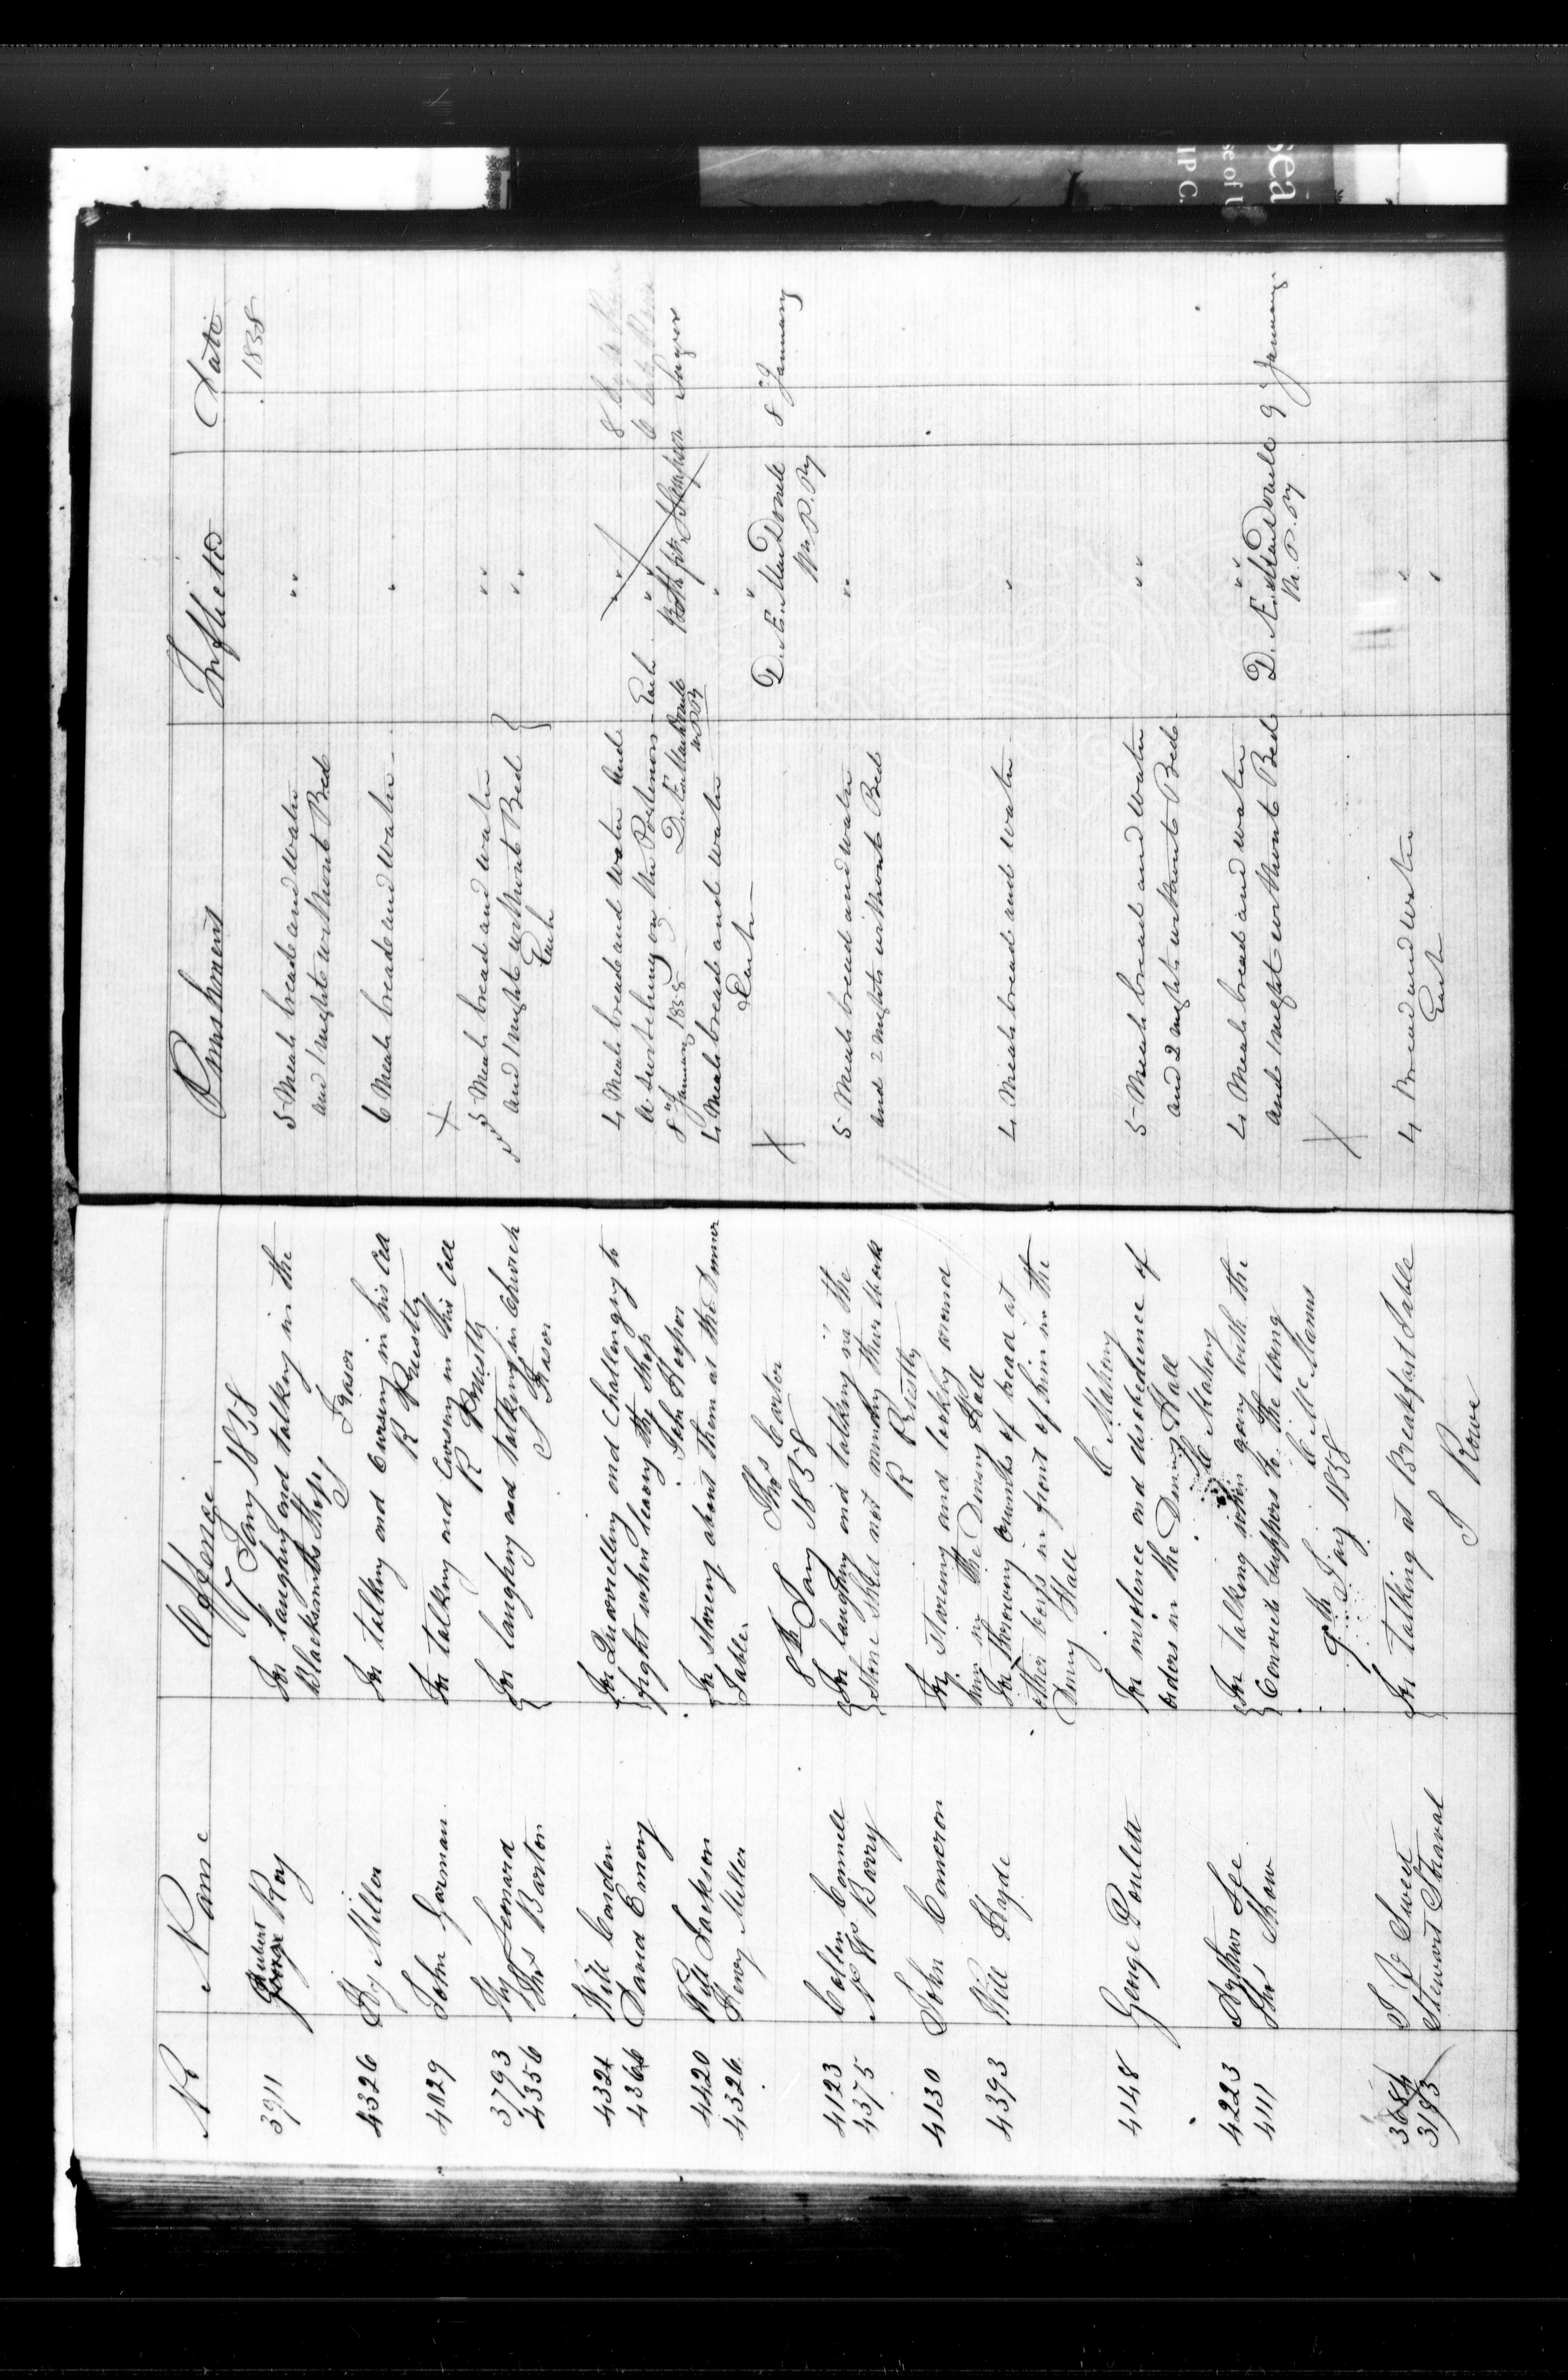 No Name Offence Punishment Inflicted Date
7 Jany 1858 1858
3911 Hubert Roy For laughing and talking in the 5 Meals bread and water "
Blacksmiths Shop and 1 night without Bed
S Fraser
4326 Hy Miller For talking and Cursing in his Cell 6 Meals bread and water "
R Priestly
4029 John Gorman For talking and Cursing in his Cell X
R Priestly
3793 Leonard For laughing and talking in Church 5 Meals bread and water "
4356 Thos Barton S Fraser and 1 night without Bed "
Each
4324 Will Conden For Quarrelling and Challenging to 4 Meals bread and water and "
4366 David Emery fight when leaving the Shop on the Each "
John 8th January 1858 D. Æ. MacDonell
4420 Will Jackson For staring about them at the Dinner 4 Meals bread and water "
4326 Henry Miller Table Each "
Thos Carter X D. Æ. MacDonell 8 January
8th Jany 1858
4123 Connell For laughing and talking in the 5 Meals bread and water "
4375 Barry Stone Shed not minding their work and 2 nights without Bed
R Priestly
4130 John Cameron For staring and looking around
him in the Dining Hall
4393 Will Hyde For throwing crumbs of bread at 4 Meals bread and water "
other boys in front of him in the
Dining Hall
C Mahony
4148 George Poulett For insolence and disobedience of 5 Meals bread and water "
orders in the Dining Hall and 2 nights without Bed
C Mahony
4223 Arthur Lee For talking when going with the 4 Meals bread and water "
4111 Thos Shaw Convicts suppers to the wing and 1 night without Bed D. Æ. MacDonell 9 January
C McManus
9th Jany 1858 X
3684 Sweet For talking at Breakfast Table 4 Bread and water "
3193 Stewart Each "
S Rowe